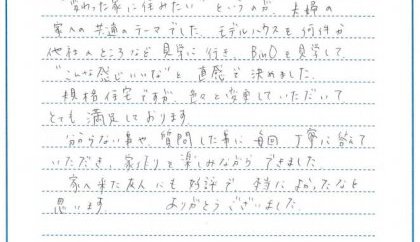 "変わった家に住みたい" というのが 夫婦の
家への共通のテーマでした。モデルハウスも何件か
他社のところなど見学に行き、BinOを見学して
"こんな感じいいな"と 直感で決めました。
規格住宅ですが、色々と変更していただいて
とても満足しております
分からない事や、質問した事に毎回丁寧に答えて
いただき、家作りを楽しみながらできました。
家へ来た友人にも好評で 本当によかったなと
思います ありがとうございました。